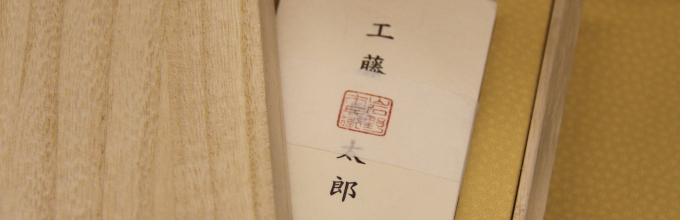 工藤
太郎